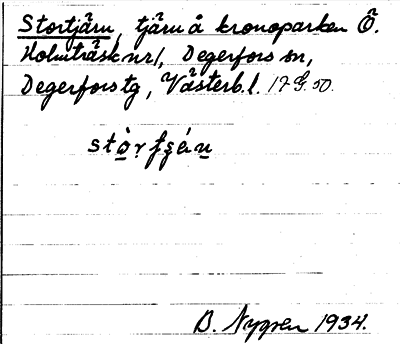 Stortjärn, tjärn å kronoparken Ö.
Holmträsk nr 1, Degerfors sn,
Degerfors tg, Västerb. l. 17 G. 50.
stò̱r̥fʂǽṉ
B. Nygren 1934.